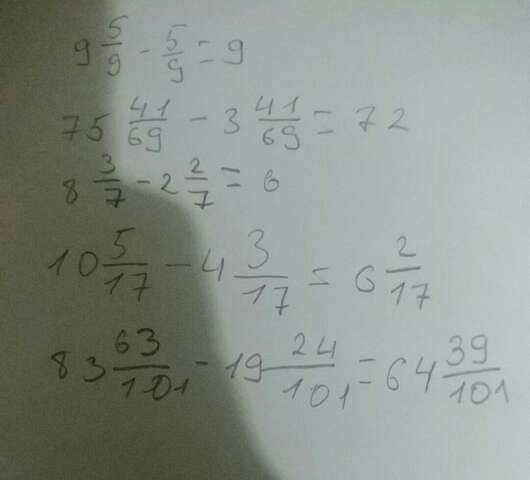 9 5/9 - 5/9 = 9
75 41/69 - 3 41/69 = 72
8 3/7 - 2 2/7 = 6
10 5/17 - 4 3/17 = 6 2/17
83 63/101 - 19 24/101 = 64 39/101